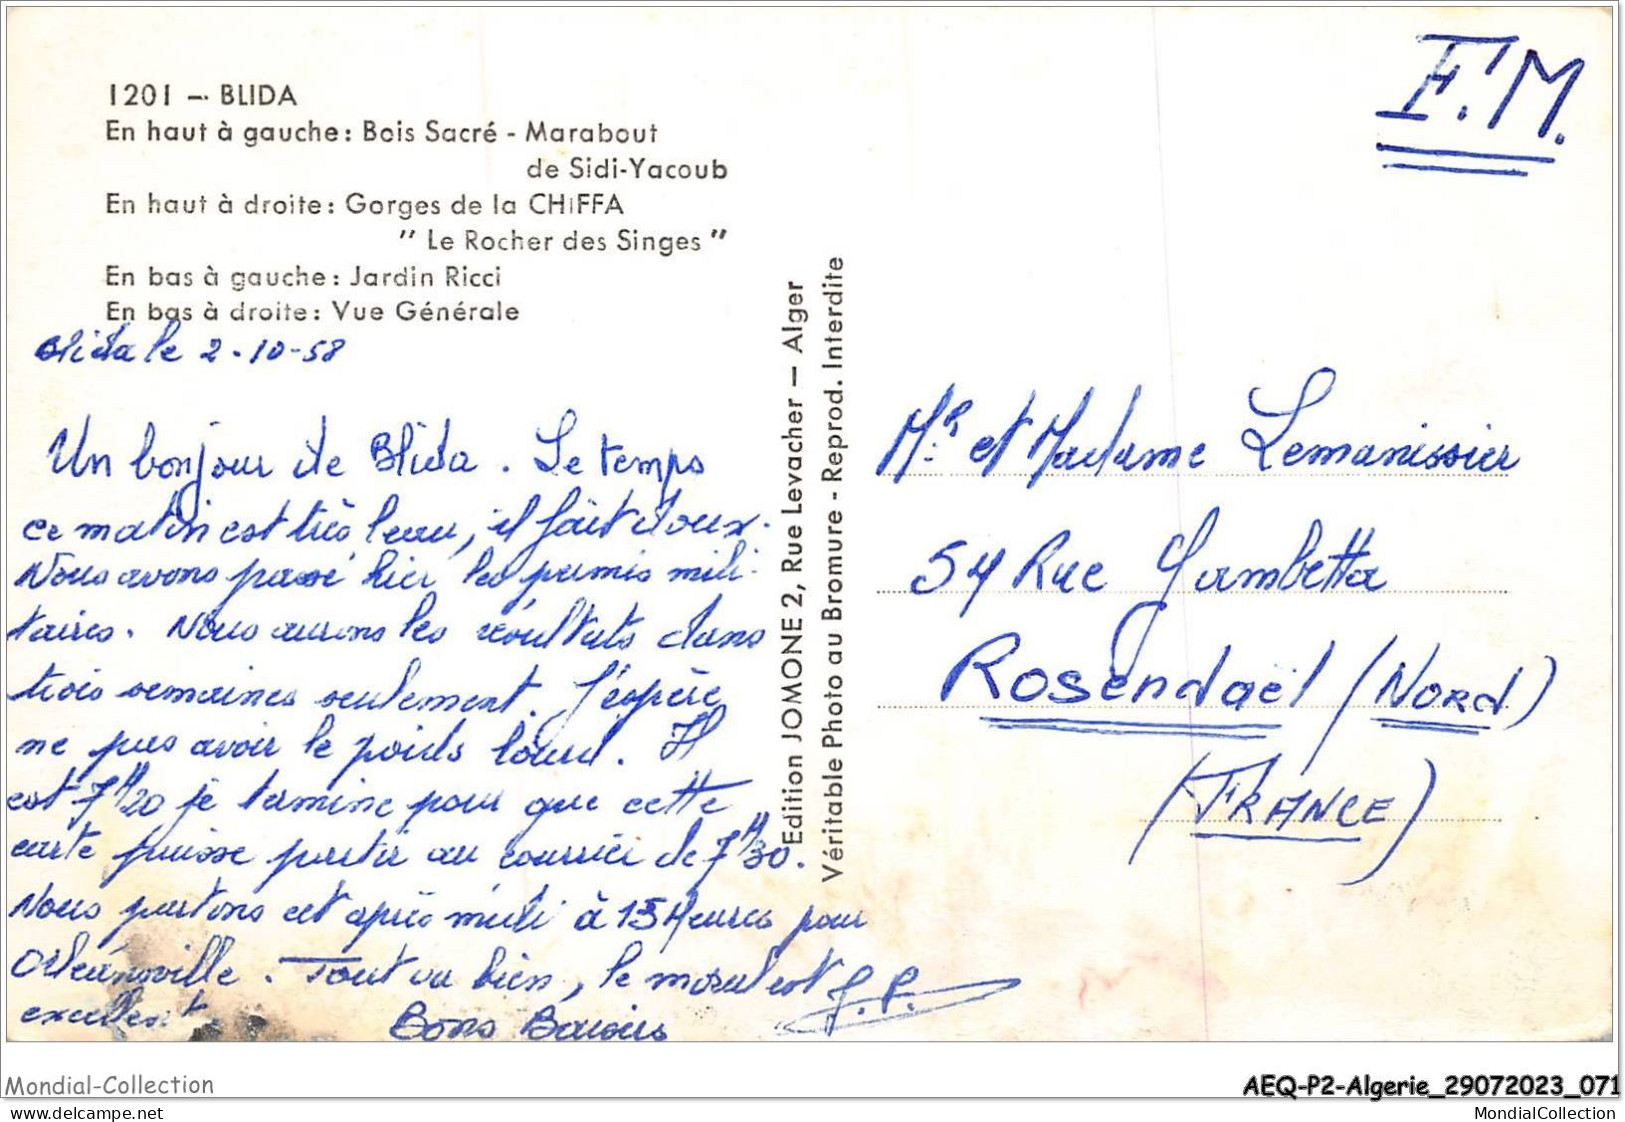 1201 — BLIDA
En haut à gauche : Bois Sacré - Marabout
de Sidi-Yacoub
En haut à droite : Gorges de la CHIFFA
" Le Rocher des Singes "
En bas à gauche : Jardin Ricci
En bas à droite : Vue Générale
Blida le 2-10-58
Un bonjour de Blida. Le temps
ce matin est très beau, il fait doux.
Nous avons passé hier les permis mili-
taires. Nous aurons les résultats dans
trois semaines seulement. J'espère
ne pas avoir le poids lourd. Il
est 7H20 je termine pour que cette
carte puisse partir au courrier de 7H30.
Nous partons cet après midi à 15 Heures pour
Orléansville. Tout va bien, le moral est
excellent.
Bons Baisers
Edition JOMONE 2, Rue Levacher — Alger
Véritable Photo au Bromure - Reprod. Interdite
F.M.
Mr. et Madame Lemanissier
54 Rue Gambetta
Rosendaël (Nord)
(FRANCE)
Mondial-Collection
AEQ-P2-Algerie_29072023_071
www.delcampe.net
MondialCollection